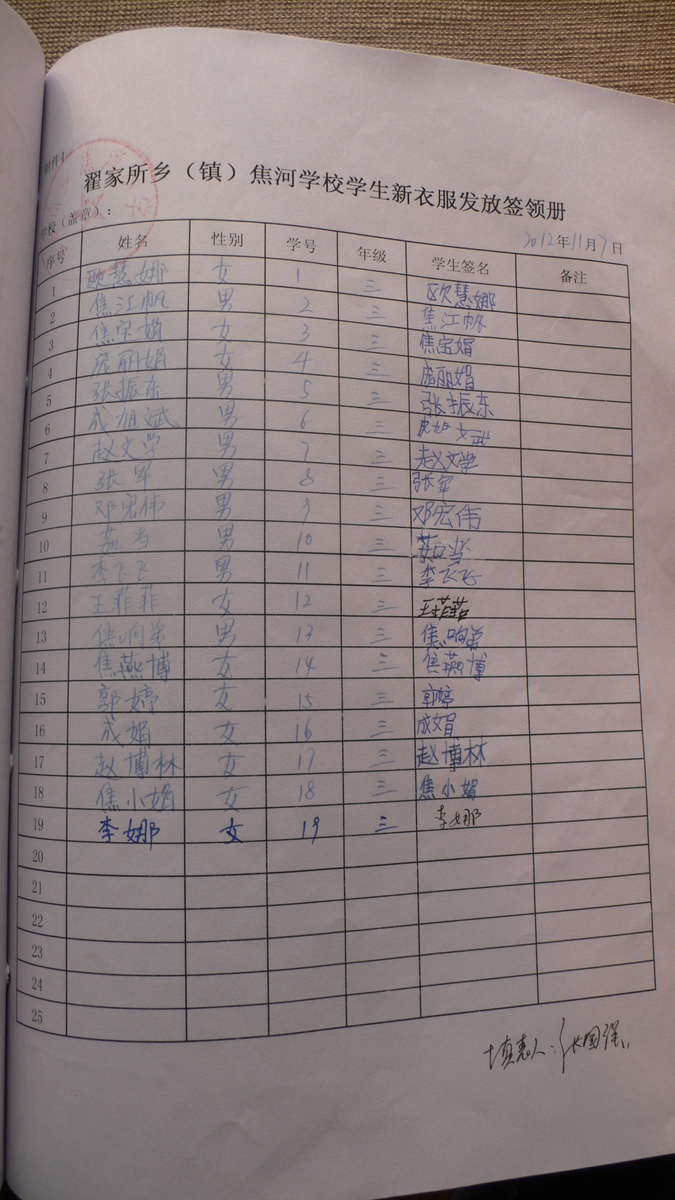 附件4
翟家所乡（镇）焦河学校学生新衣服发放签领册
学校（盖章）： 2012年11月7日
序号 姓名 性别 学号 年级 学生签名 备注
1 欧慧娜 女 1 三 欧慧娜
2 焦江帆 男 2 三 焦江帆
3 焦宝娟 女 3 三 焦宝娟
4 庞丽娟 女 4 三 庞丽娟
5 张振东 男 5 三 张振东
6 成旭斌 男 6 三
7 赵文学 男 7 三 赵文学
8 张军 男 8 三 张军
9 邓宏伟 男 9 三 邓宏伟
10 茹当 男 10 三 茹当
11 李飞飞 男 11 三 李飞飞
12 王菲菲 女 12 三 王菲菲
13 焦响弟 男 13 三 焦响弟
14 焦燕博 女 14 三 焦燕博
15 郭婷 女 15 三 郭婷
16 成娟 女 16 三 成娟
17 赵博林 女 17 三 赵博林
18 焦小娟 女 18 三 焦小娟
19 李娜 女 19 三 李娜
20
21
22
23
24
25
填表人：张国强